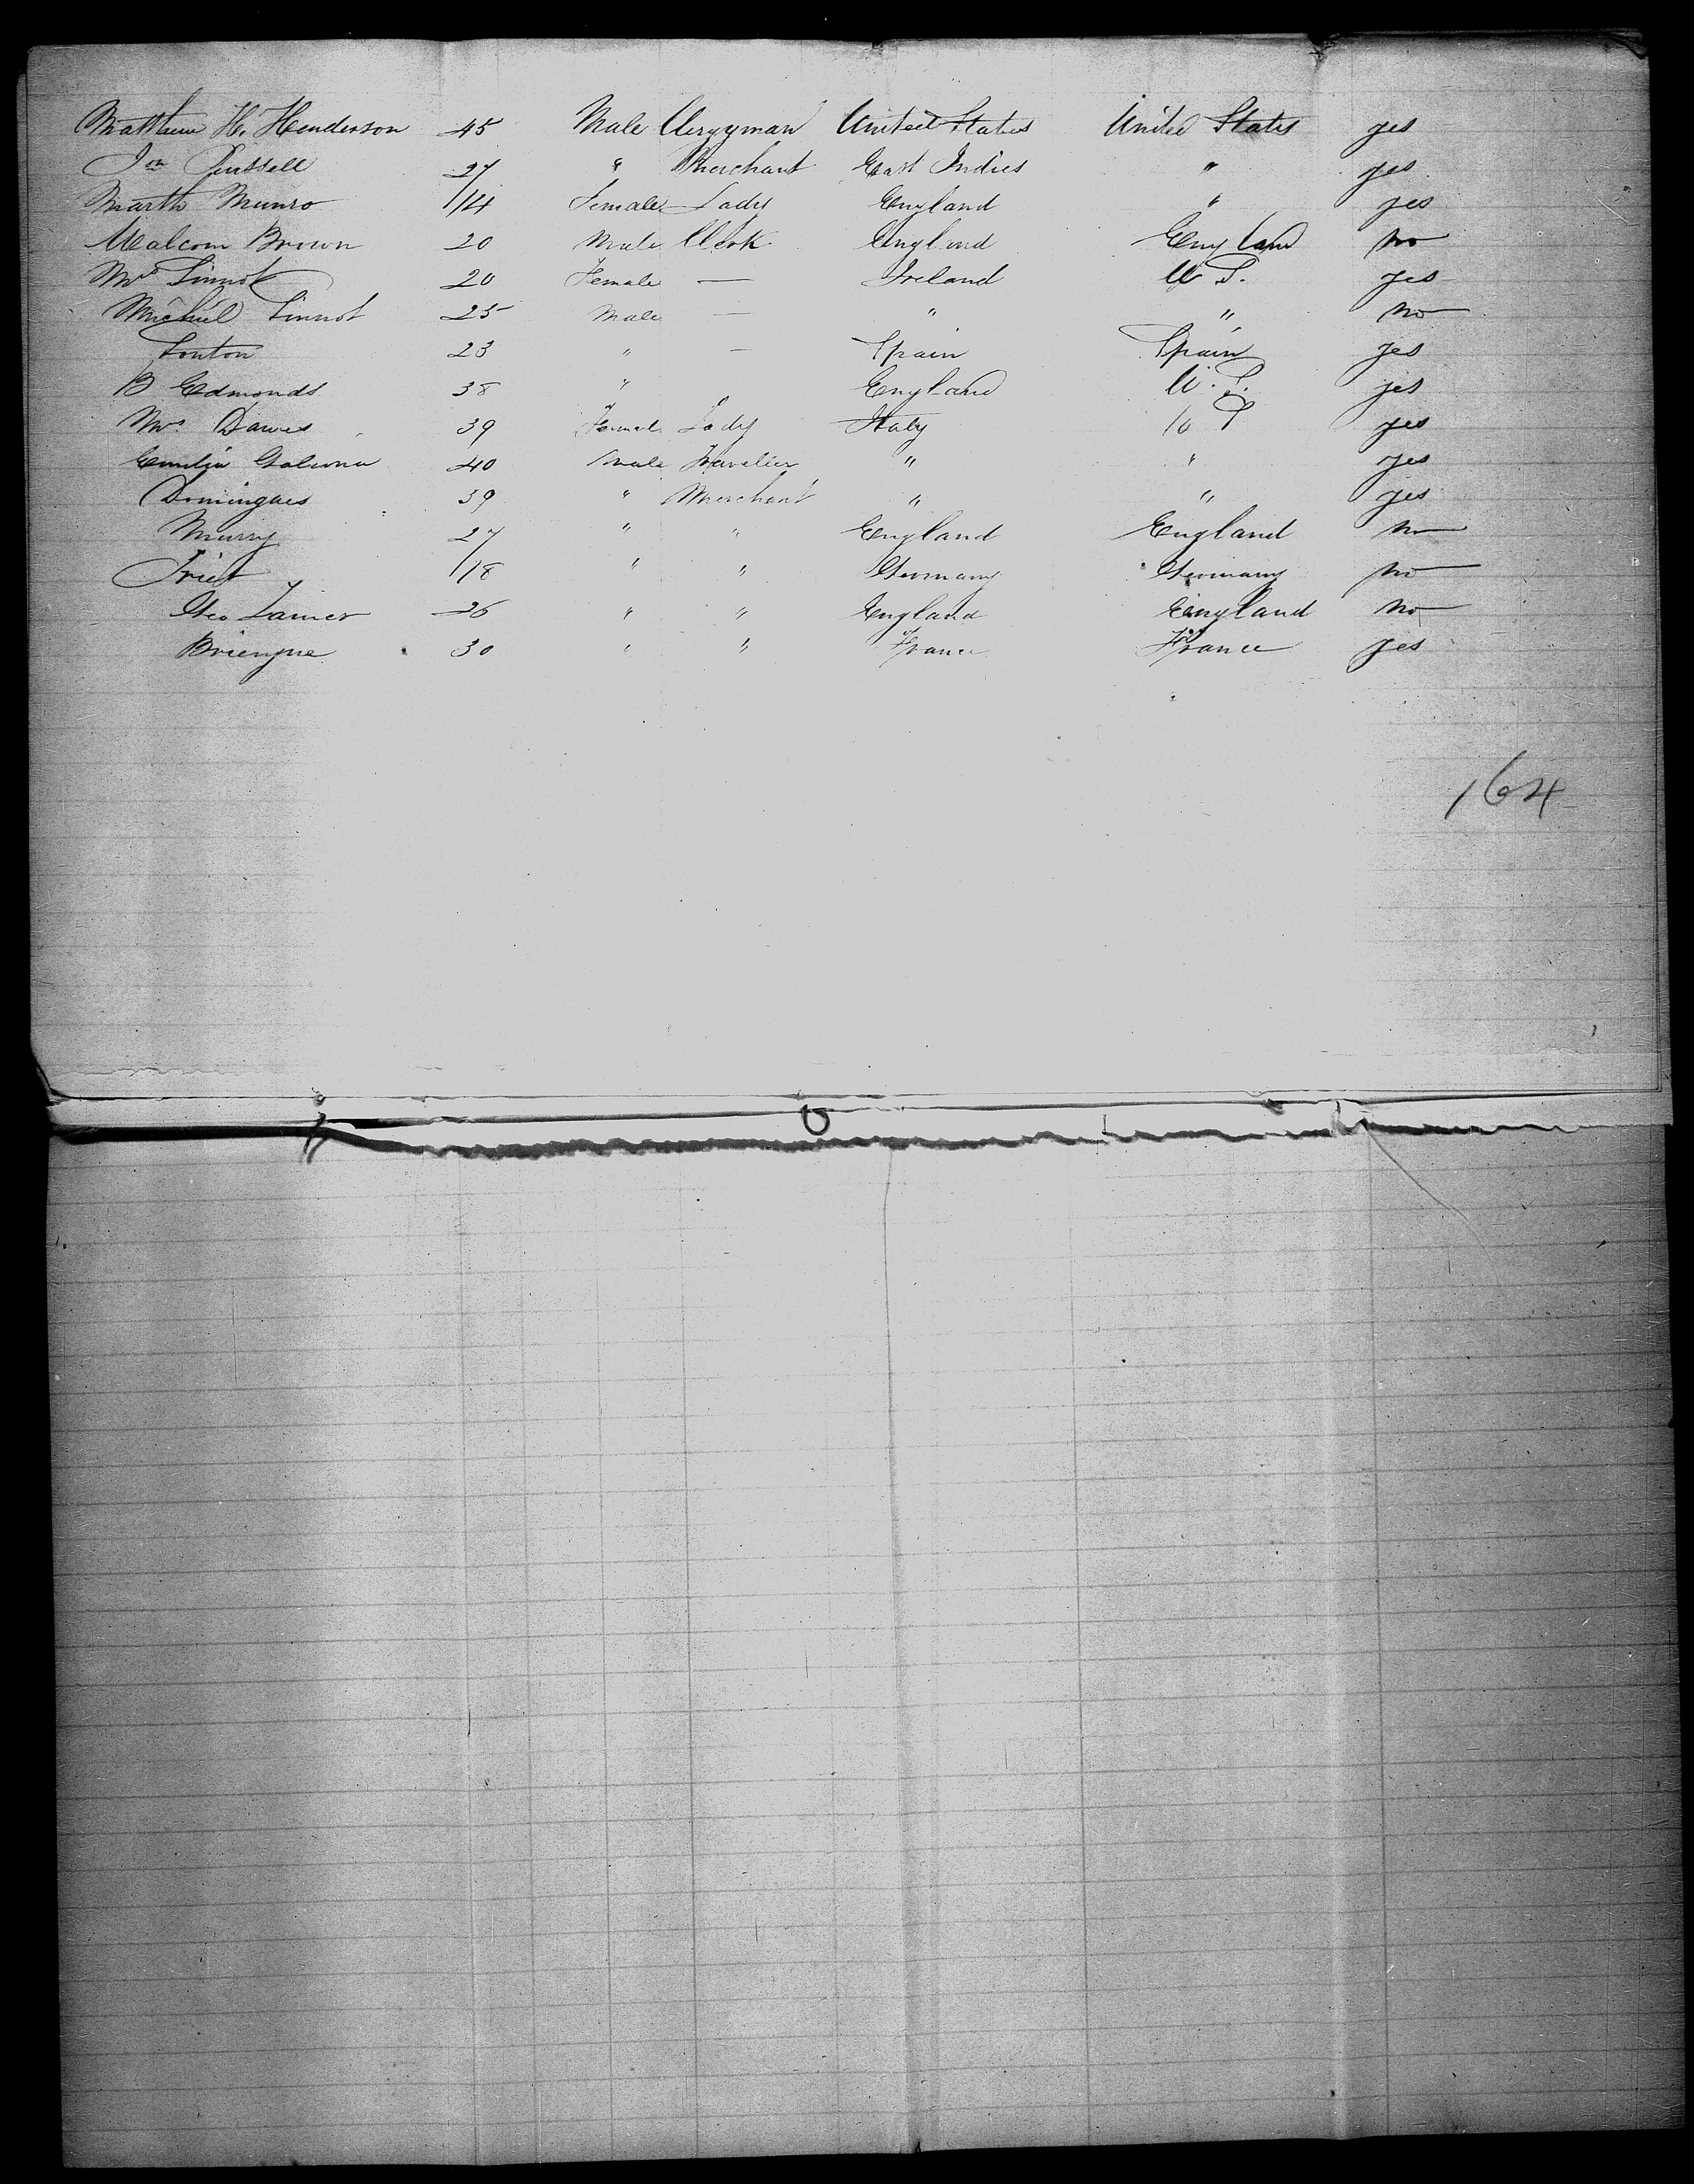 Matthew H. Henderson 45 Male Clergyman United States United States yes
Jno Russell 27 " Merchant East Indies " yes
Marth Munro 14 Female Lady England " yes
Malcom Brown 20 Male Clerk England England no
Mrs Sinnot 20 Female — Ireland U S. yes
Michael Sinnot 25 Male — " " no
23 " — Spain Spain yes
B Edmonds 38 " England U. S. yes
Mrs Dawes 39 Female Lady Italy U S yes
40 Male Traveller " " yes
Domingues 39 " Merchant " " yes
Murry 27 " " England England no
18 " " Germany Germany no
Geo 26 " " England England no
30 " " France France yes
164